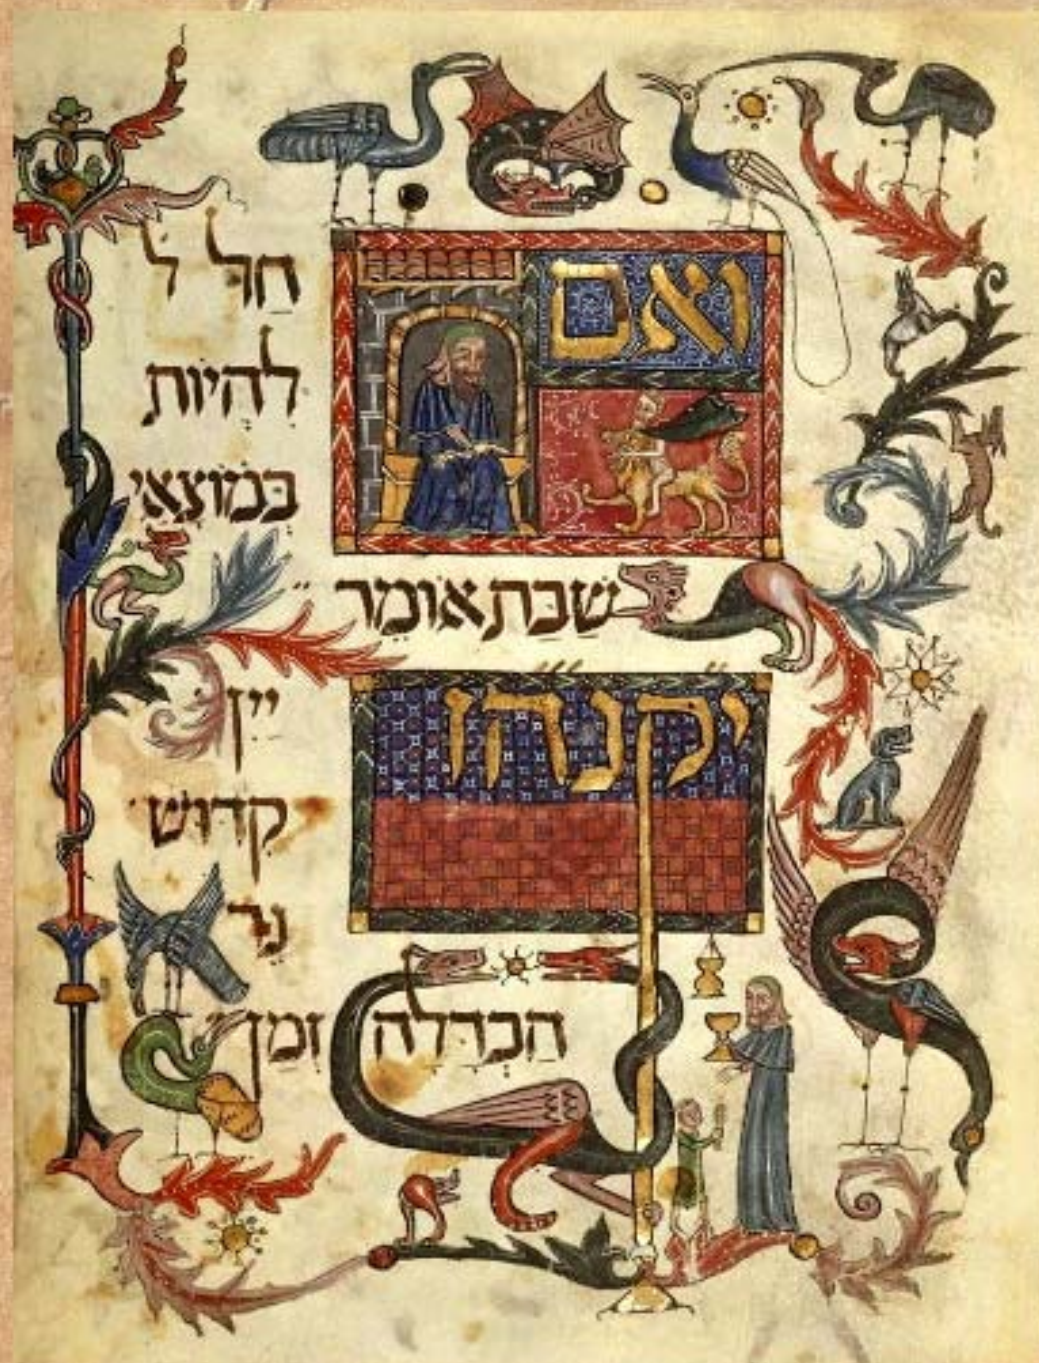 ואם
חַל ל
לִהְיוֹת
בְּמוֹצָאֵי
שַׁבַּת אוֹמֵר
יקנהז
יַיִן
קִדּוּשׁ
נֵר
הַבְדָּלָה זְמַן